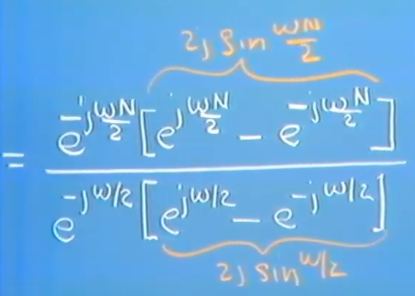 2j sin ωN/2
= e^{-jωN/2} [ e^{jωN/2} - e^{-jωN/2} ]
e^{-jω/2} [ e^{jω/2} - e^{-jω/2} ]
2j sin ω/2